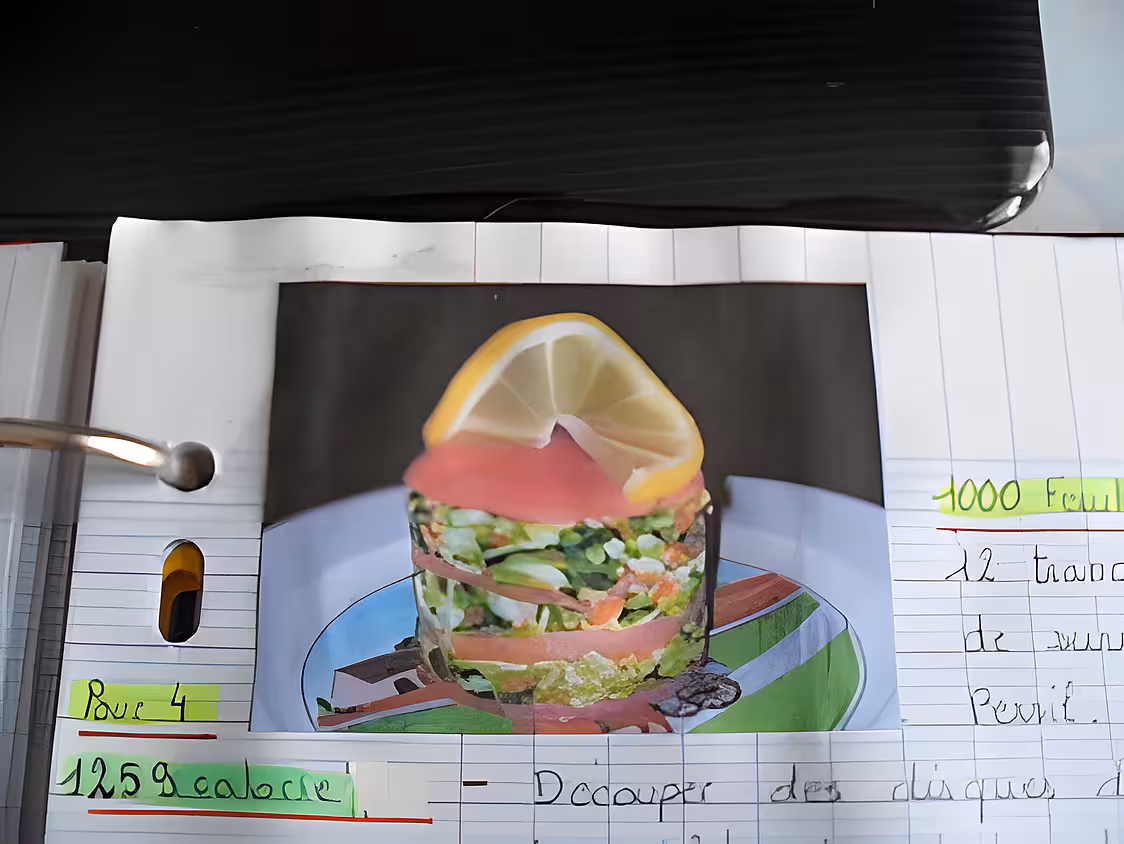 1000 Feuil
12 tranc
de
Persil.
Pour 4
1259 calorie
- Découper des disques d